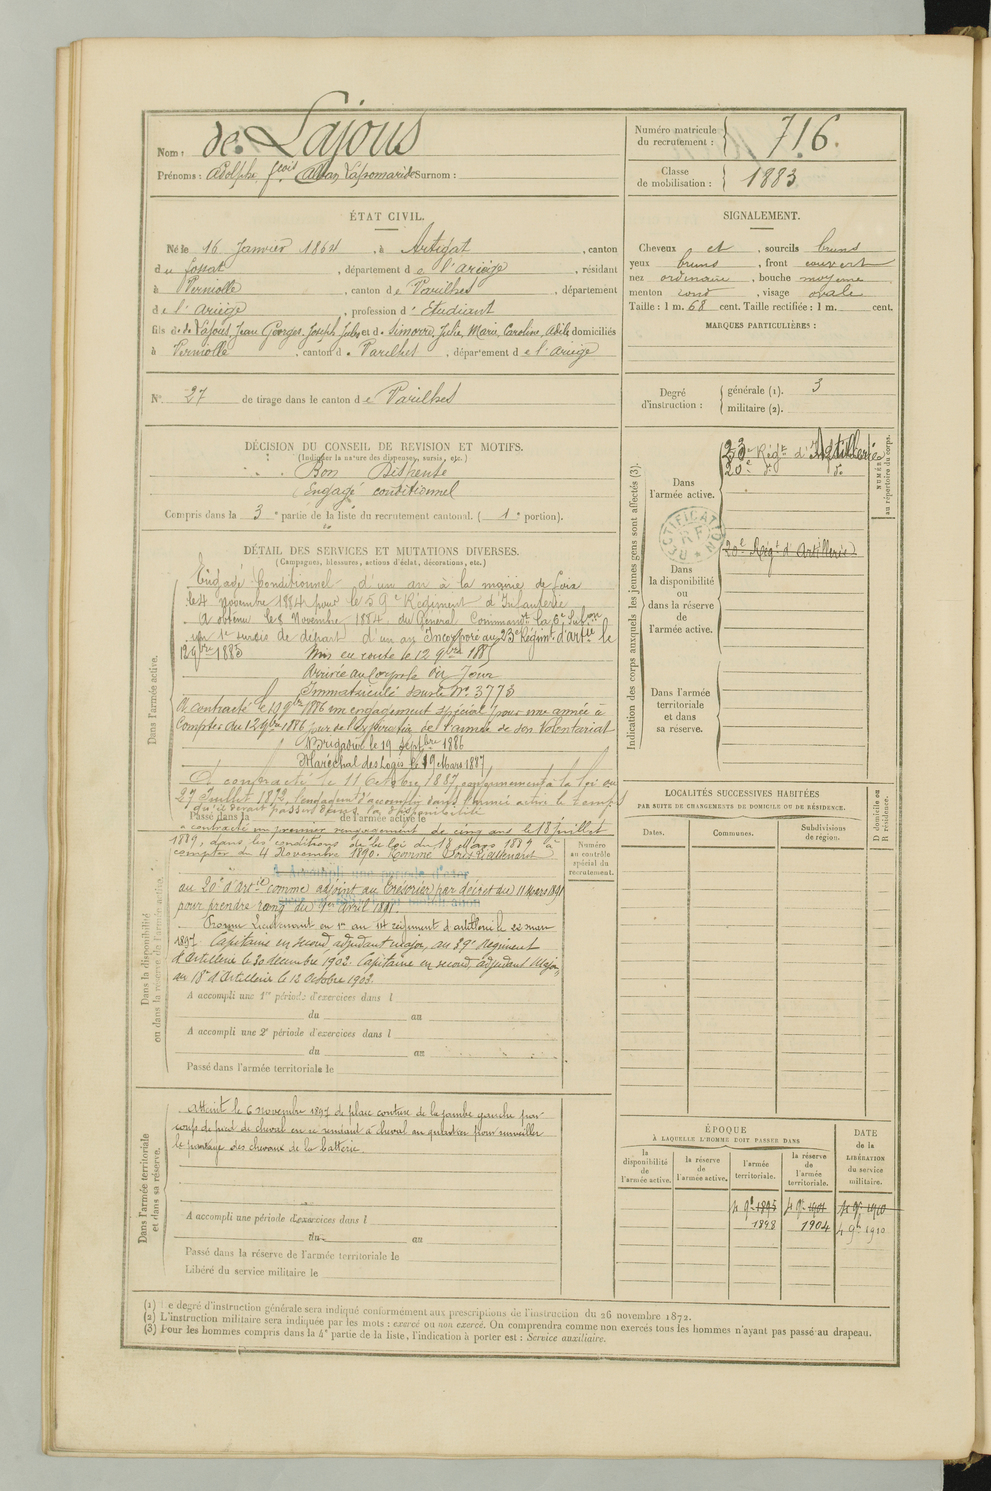 Nom : de Lajous
Prénoms : Adolphe, fçois Alban, Surnom :
Numéro matricule du recrutement : 716.
Classe de mobilisation : 1883
ÉTAT CIVIL.
Né le 16 Janvier 1864, à Artigat, canton
du fossat, département de l'ariège, résidant
à Verniolle, canton de Varilhes, département
de l'ariège, profession d'Etudiant
fils de de Lajous, Jean Georges, Joseph Jules et de Simorre, Julie, Marie, Caroline, Adèle domiciliés
à Verniolle, canton de Varilhes, département de l'ariège
N° 27 de tirage dans le canton de Varilhes
SIGNALEMENT.
Cheveux et, sourcils bruns
yeux bruns, front couvert
nez ordinaire, bouche moyenne
menton rond, visage ovale
Taille : 1 m. 68 cent. Taille rectifiée : 1 m. cent.
MARQUES PARTICULIÈRES :
Degré d'instruction : générale (1). 3
militaire (2).
DÉCISION DU CONSEIL DE REVISION ET MOTIFS.
(Indiquer la nature des dispenses, sursis, etc.)
Bon
Engagé conditionnel
Compris dans la 3e partie de la liste du recrutement cantonal. (1e portion).
DÉTAIL DES SERVICES ET MUTATIONS DIVERSES.
(Campagnes, blessures, actions d'éclat, décorations, etc.)
Dans l'armée active.
Engagé Conditionnel d'un an à la mairie de foix
le 4 Novembre 1884 pour le 59e Régiment d'Infanterie
A obtenu le 8 Novembre 1884 du Général Commandt la 6e Subon
un 1er sursis de départ d'un an Incorporé au 23e Régimt d'artie le
12 9bre 1885 Mis en route le 12 9bre 1885
Arrivé au Corps le dit Jour
Immatriculé sous le No 3773
A contracté le 19 9bre 1886 un engagement spécial pour une année à
Compter du 12 9bre 1886 jour de l'expiration de l'année de son Volontariat
Brigadier le 19 Septbre 1886
Maréchal des Logis le 19 Mars 1887
A contracté le 11 Octobre 1887 conformément à la loi du
27 Juillet 1872, l'engagemt d'accomplir dans l'armée active le temps
qu'il devait passer dans la disponibilité
Passé dans la de l'armée active le
a contracté un premier rengagement de cinq ans le 18 juillet
1889, dans les conditions de la loi du 18 Mars 1889 à
compter du 4 Novembre 1890. Nommé Sous Lieutenant
au 20e d'artie comme adjoint au Trésorier par décret du 11 Mars 1891
pour prendre rang du 1er Avril 1891.
Promu Lieutenant en 1er au 14 régiment d'artillerie le 22 mars
1897. Capitaine en second, adjudant major, au 29e Régiment
d'Artillerie le 30 décembre 1902. Capitaine en second, adjudant Major
au 18e d'Artillerie le 12 Octobre 1903.
Dans la disponibilité ou dans la réserve de l'armée active.
Numéro au contrôle spécial du recrutement.
A accompli une 1re période d'exercices dans l
du au
A accompli une 2e période d'exercices dans l
du au
Passé dans l'armée territoriale le
Dans l'armée territoriale et dans sa réserve.
Atteint le 6 novembre 1897 de plaie contuse de la jambe gauche par
coup de pied de cheval en se rendant à cheval au quartier pour surveiller
le pansage des chevaux de la batterie.
A accompli une période d'exercices dans l
du au
Passé dans la réserve de l'armée territoriale le
Libéré du service militaire le
Indication des corps auxquels les jeunes gens sont affectés (3).
Dans l'armée active.
23e Régt d'Artillerie
20e do do
NUMÉRO au répertoire du corps.
RECTIFICATION R F
20e Régt d'Artillerie
Dans la disponibilité ou dans la réserve de l'armée active.
Dans l'armée territoriale et dans sa réserve.
LOCALITÉS SUCCESSIVES HABITÉES
PAR SUITE DE CHANGEMENTS DE DOMICILE OU DE RÉSIDENCE.
Dates. Communes. Subdivisions de région.
D domicile ou R résidence.
ÉPOQUE
À LAQUELLE L'HOMME DOIT PASSER DANS
la disponibilité de l'armée active.
la réserve de l'armée active.
l'armée territoriale.
la réserve de l'armée territoriale.
DATE de la LIBÉRATION du service militaire.
4 9bre 1895 4 9bre 1901 4 9bre 1910
1898 1904 4 9bre 1910
(1) Le degré d'instruction générale sera indiqué conformément aux prescriptions de l'instruction du 26 novembre 1872.
(2) L'instruction militaire sera indiquée par les mots : exercé ou non exercé. On comprendra comme non exercés tous les hommes n'ayant pas passé au drapeau.
(3) Pour les hommes compris dans la 4e partie de la liste, l'indication à porter est : Service auxiliaire.